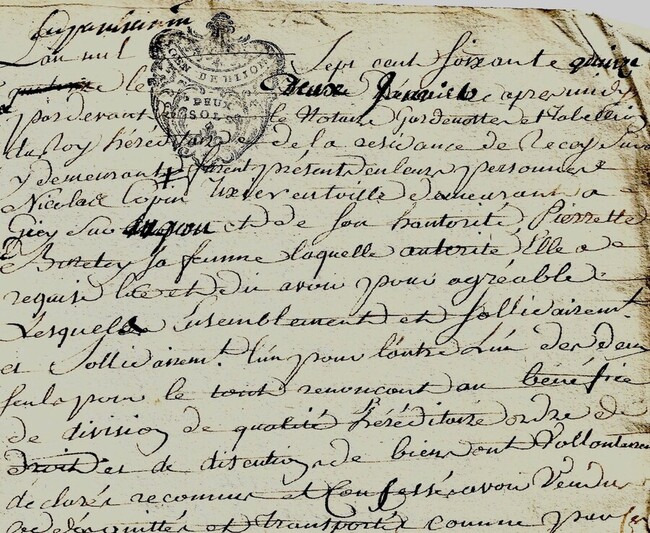 L'an mil Sept cent soixante quinze
quatorze le deux Janvier apres midy
pardevant le Notaire gardenotte et Tabellion
du Roy héréditaire de la residance de Recey Sur
y demeurant furent présent en leurs personnes
Nicolas Copin demeurant a
Giey Sur aujon et de Son hautorité, Pierrette
sa femme laquelle autorité Elle a
requise et eu avoir pour agréable
Lesquels ensemblement et sollidairemt.
et sollidairemt. l'un pour l'autre L'un des deux
seul pour le tout renonceant au bénéfice
de division de qualité héréditaire ordre de
droit et de discution de biens ont Vollontairement
déclarés reconnus et Confessé avoir Vendu
quittés et transportés comme par
GEN. DE DIJON
DEUX
SOLS